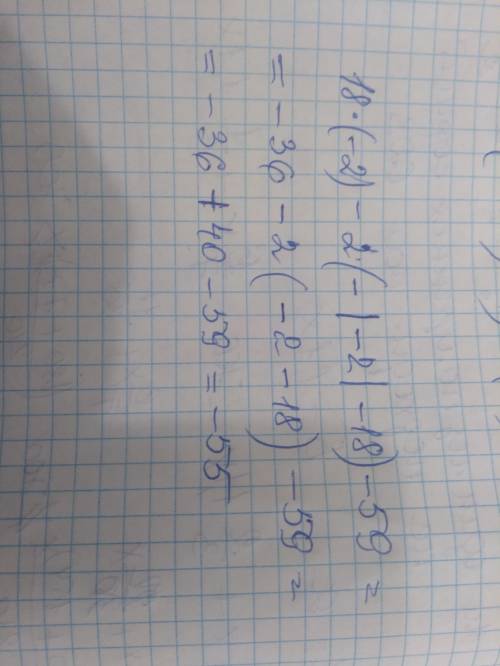 18·(-2) - 2(-|-2| - 18) - 59 =
= -36 - 2(-2 - 18) - 59 =
= -36 + 40 - 59 = -55